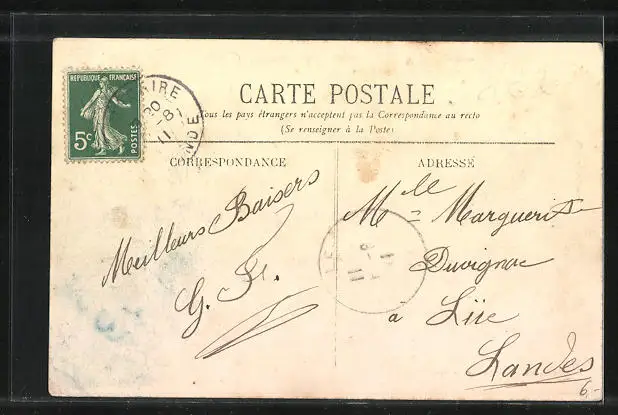 REPUBLIQUE FRANÇAISE
5c
POSTES
CARTE POSTALE
Tous les pays étrangers n'acceptent pas la Correspondance au recto
(Se renseigner à la Poste)
CORRESPONDANCE
Meilleurs Baisers
ADRESSE
Mlle Marguerite
Duvignac
a Lüe
Landes
6.-